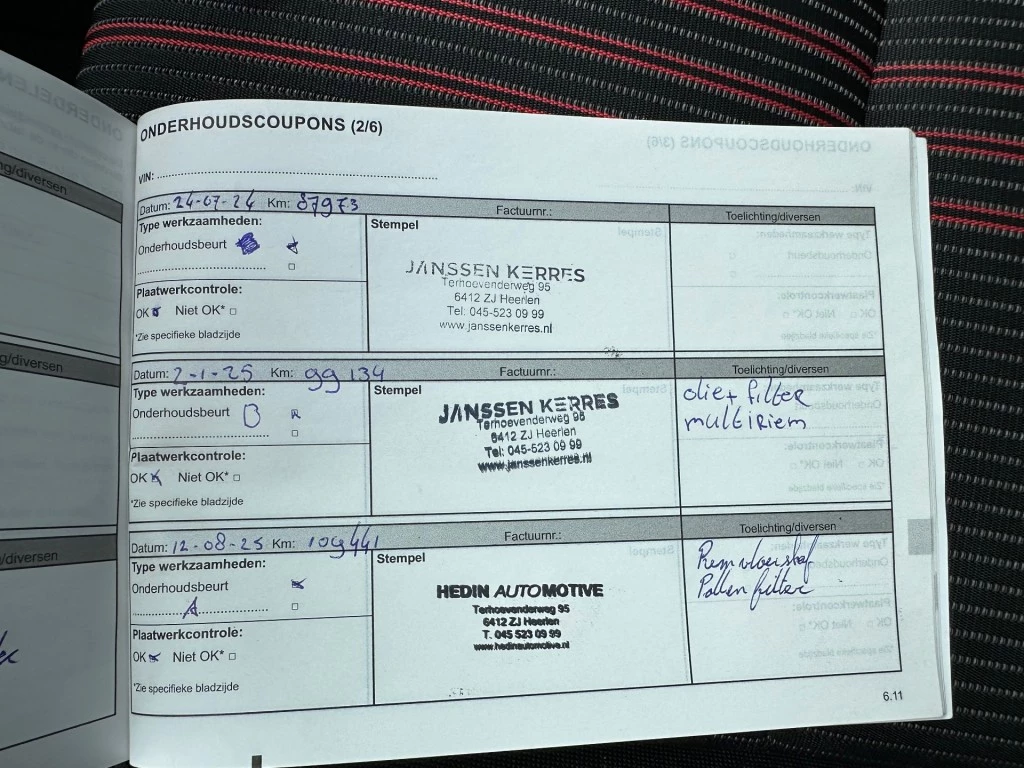 ONDERHOUDSCOUPONS (2/6)
VIN:
Datum: 24-07-24 Km: 87973 Factuurnr.: Toelichting/diversen
Type werkzaamheden:
Onderhoudsbeurt
Plaatwerkcontrole:
OK Niet OK*
*Zie specifieke bladzijde
Stempel
JANSSEN KERRES
Terhoevenderweg 95
6412 ZJ Heerlen
Tel: 045-523 09 99
www.janssenkerres.nl
Datum: 2-1-25 Km: 99134 Factuurnr.: Toelichting/diversen
Type werkzaamheden:
Onderhoudsbeurt B
Plaatwerkcontrole:
OK Niet OK*
*Zie specifieke bladzijde
Stempel
JANSSEN KERRES
Terhoevenderweg 95
6412 ZJ Heerlen
Tel: 045-523 09 99
www.janssenkerres.nl
olie+ filter
multiriem
Datum: 12-08-25 Km: 109441 Factuurnr.: Toelichting/diversen
Type werkzaamheden:
Onderhoudsbeurt
A
Plaatwerkcontrole:
OK Niet OK*
*Zie specifieke bladzijde
Stempel
HEDIN AUTOMOTIVE
Terhoevenderweg 95
6412 ZJ Heerlen
T. 045 523 09 99
www.hedinautomotive.nl
Remvloeistof
Pollenfilter
6.11